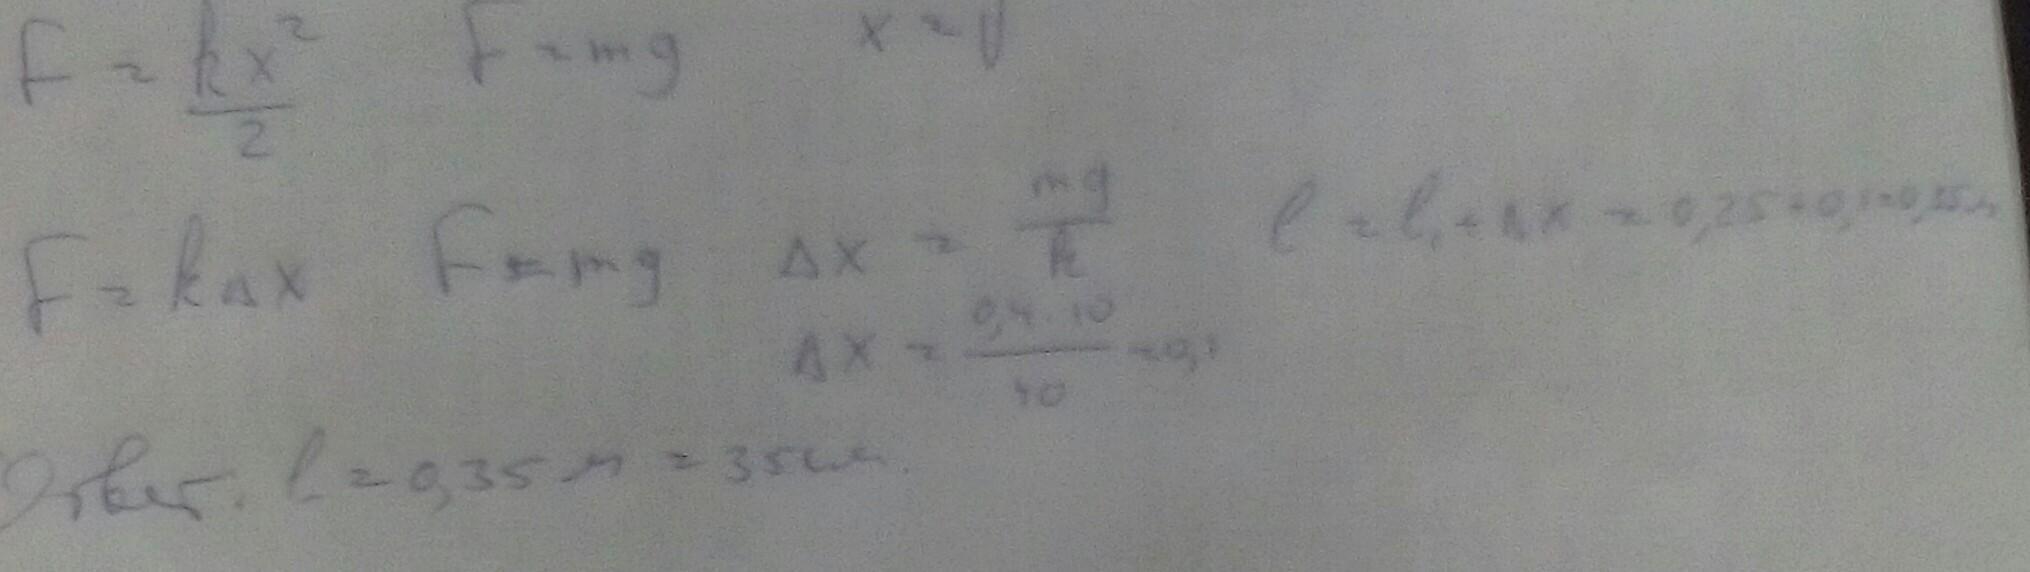 F = kx²/2 F = mg x = √
F = kΔx F = mg Δx = mg/k l = l₁ + Δx = 0,25+0,1=0,35м
Δx = 0,4·10/40 = 0,1
Ответ. l = 0,35 м = 35см.